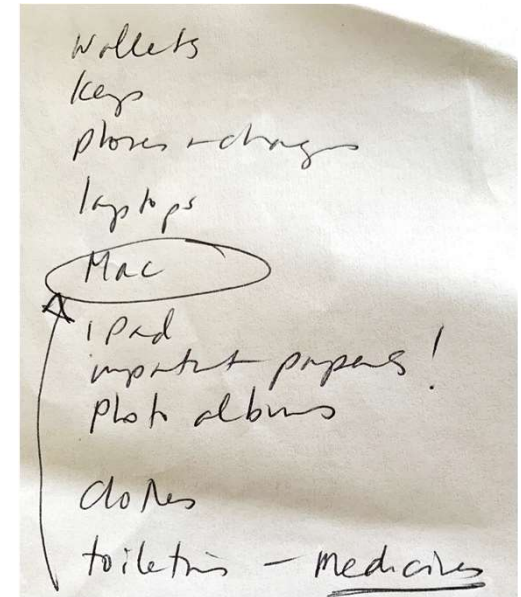 wallets
keys
phones + chargers
laptops
Mac
iPad
important papers!
photo albums
clothes
toiletries - medicines